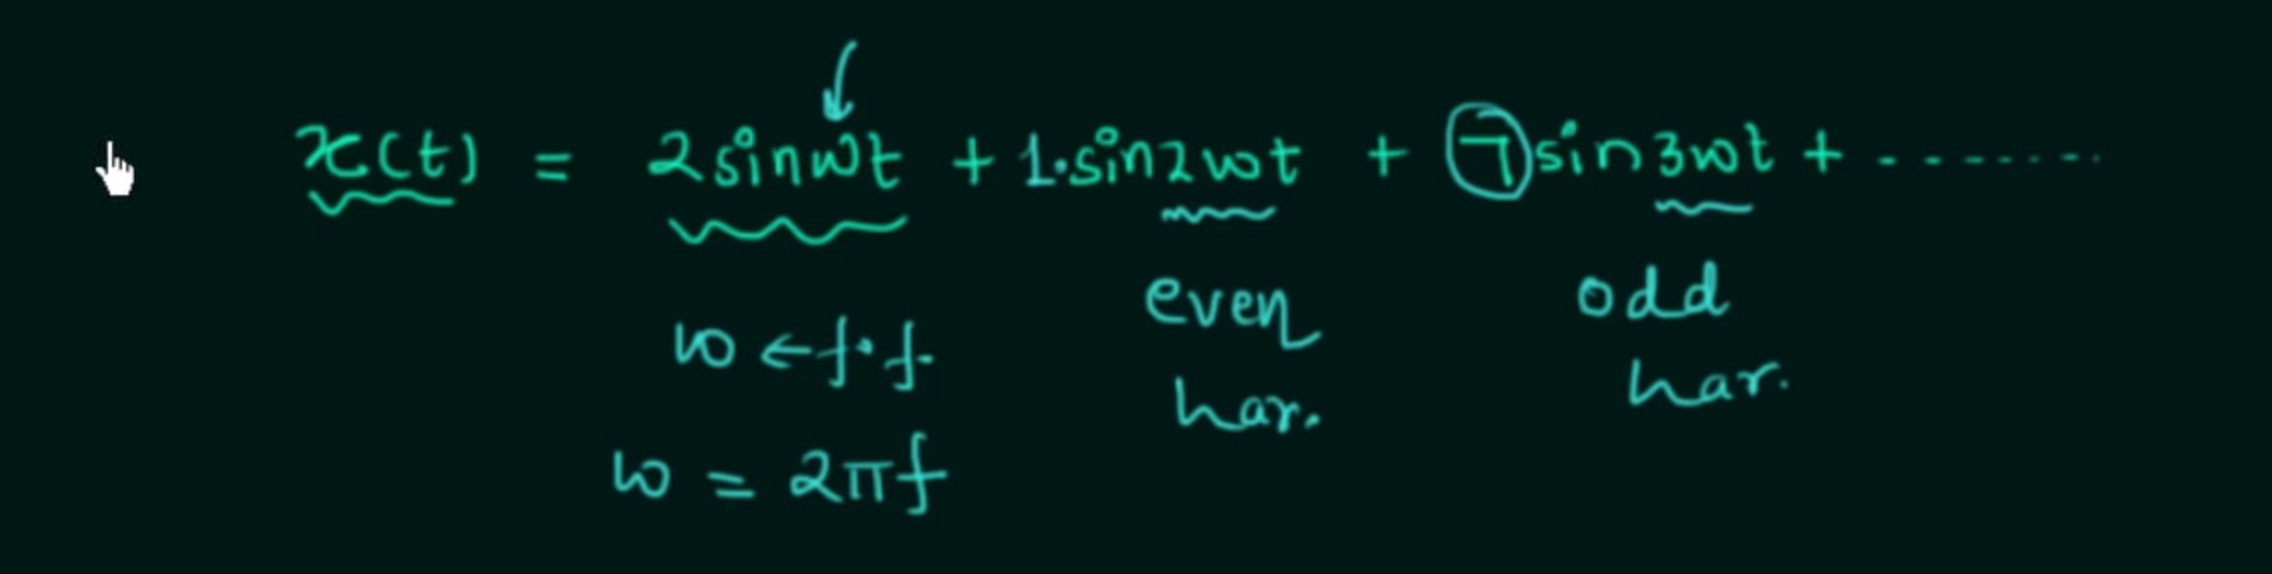 x(t) = 2sinωt + 1·sin2ωt + 7sin3ωt + -------
ω ← f·f
ω = 2πf
even
har.
odd
har.